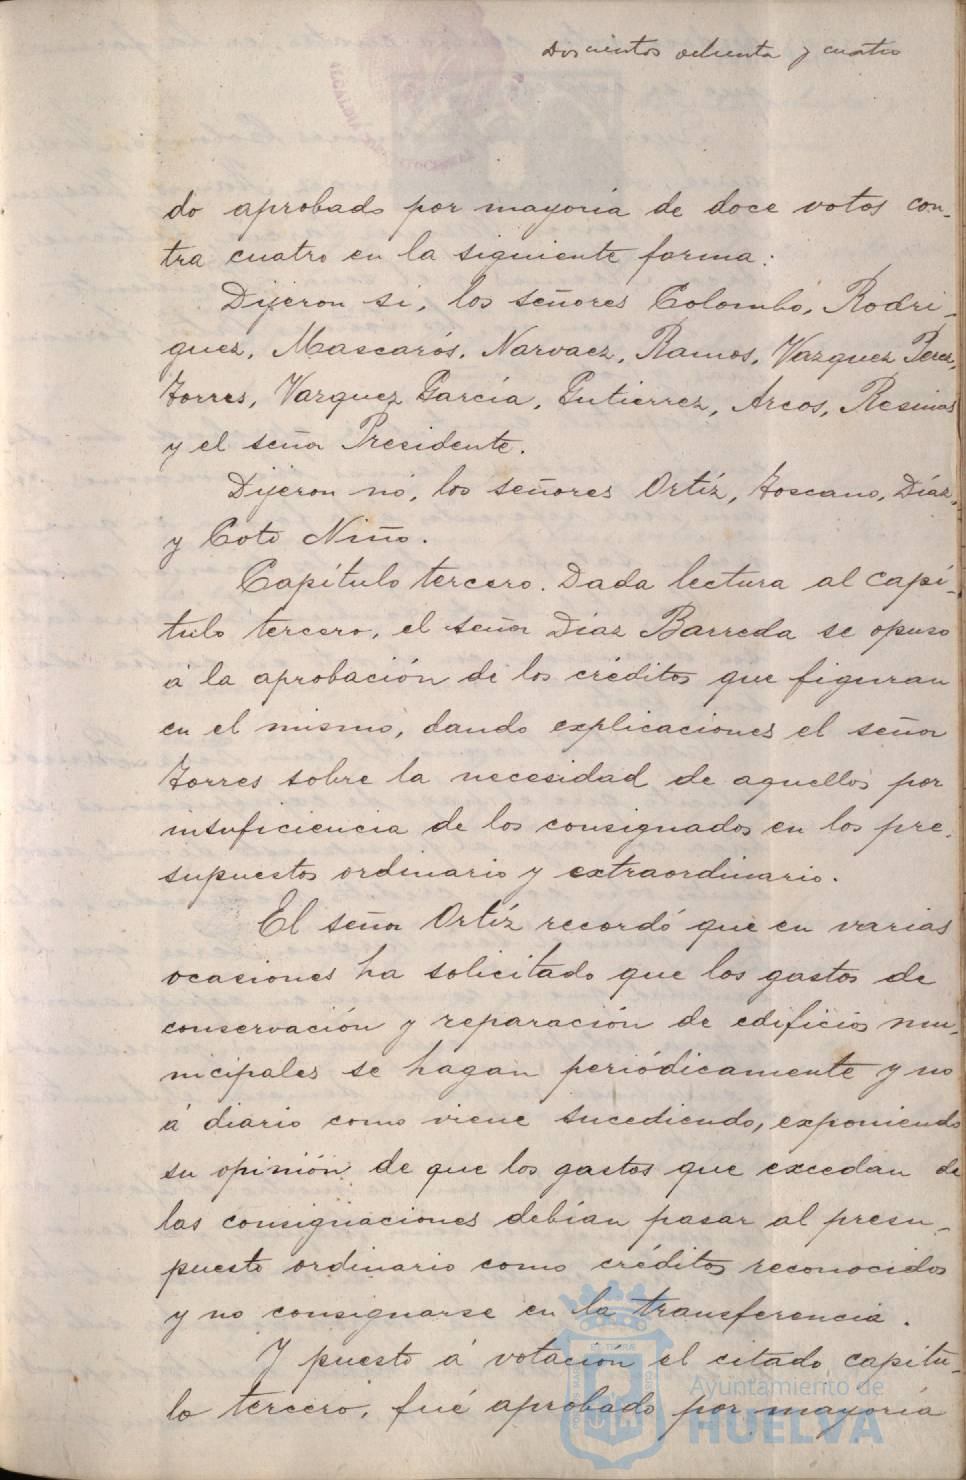 Doscientos ochenta y cuatro
do aprobado por mayoría de doce votos con-
tra cuatro en la siguiente forma:
Dijeron sí, los señores Colombó, Rodri-
guez, Mascarós, Narvaez, Ramos, Vazquez Perez,
Torres, Vazquez García, Gutierrez, Arcos, Resinas
y el señor Presidente.
Dijeron nó, los señores Ortíz, Toscano, Díaz,
y Coto Niño.
Capítulo tercero. Dada lectura al capí-
tulo tercero, el señor Díaz Barreda se opuso
á la aprobación de los créditos que figuran
en el mismo, dando explicaciones el señor
Torres sobre la necesidad de aquellos por
insuficiencia de los consignados en los pre-
supuestos ordinario y extraordinario.
El señor Ortíz recordó que en varias
ocasiones ha solicitado que los gastos de
conservación y reparación de edificios mu-
nicipales se hagan periódicamente y no
á diario como viene sucediendo, exponiendo
su opinión de que los gastos que excedan de
las consignaciones debían pasar al presu-
puesto ordinario como créditos reconocidos
y no consignarse en la transferencia.
Y puesto á votación el citado capítu-
lo tercero, fué aprobado por mayoría
Ayuntamiento de
HUELVA